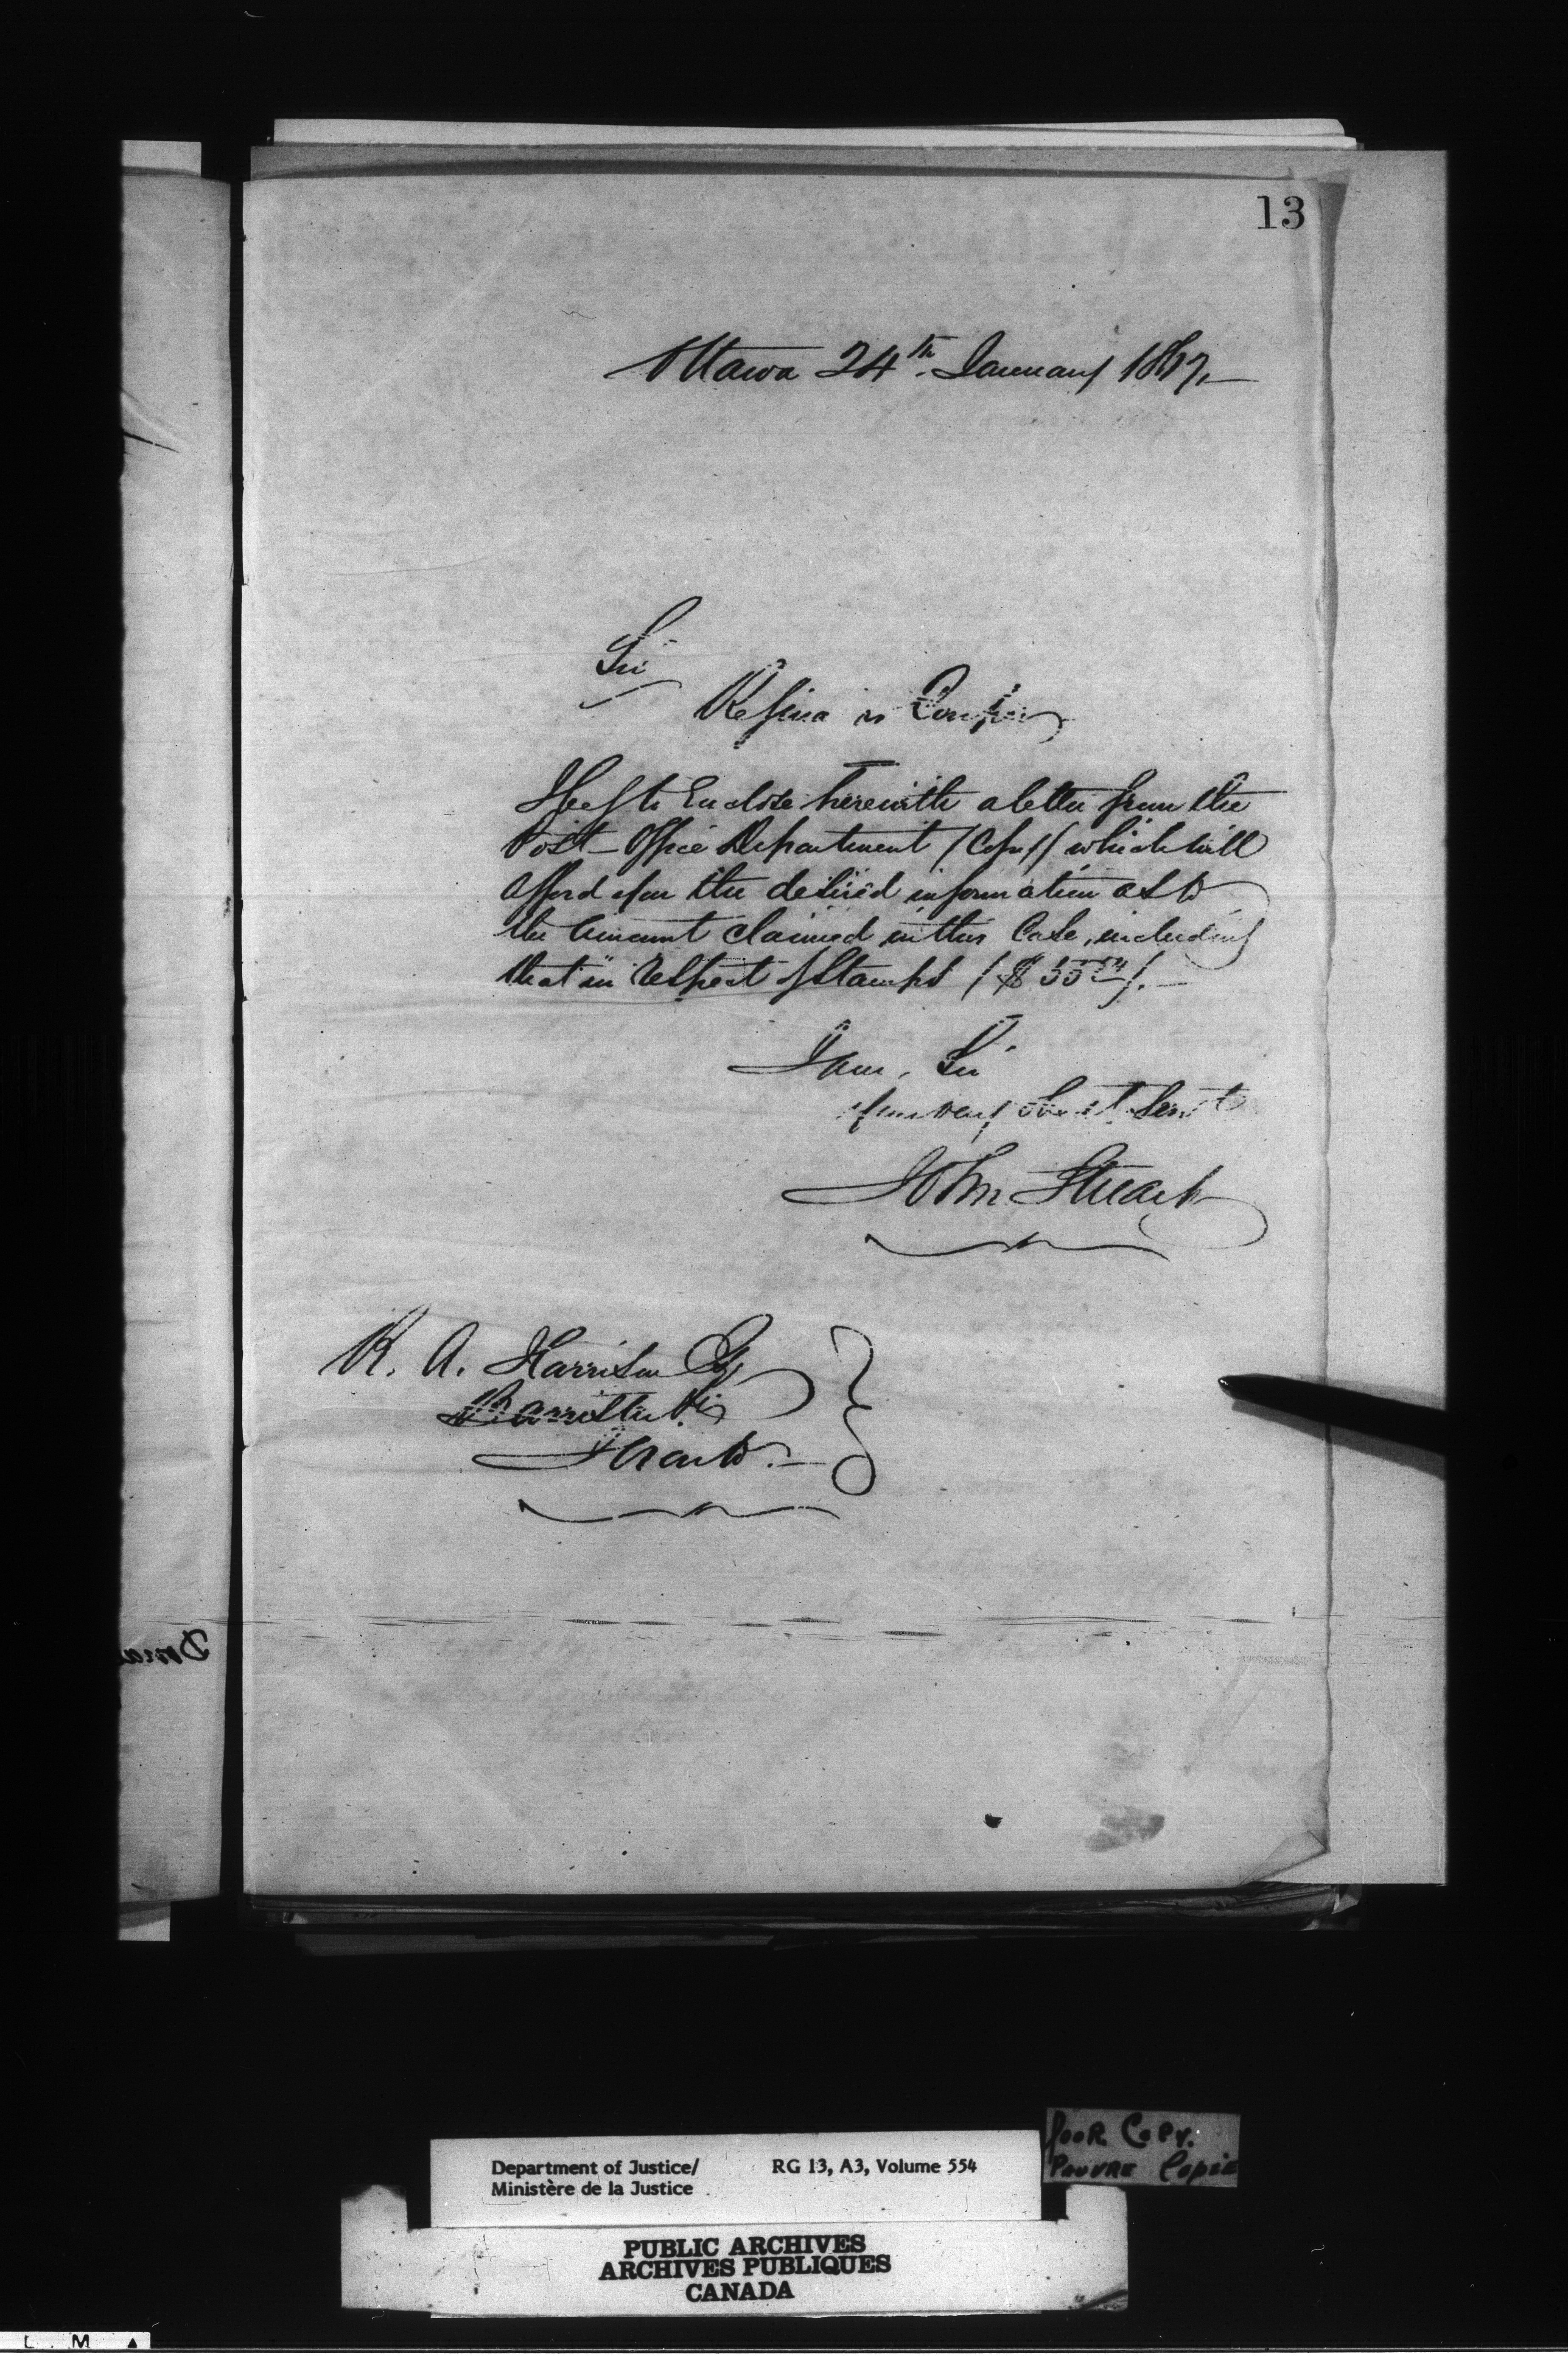 13
Ottawa 24th. January 1867,
Sir
Regina vs
I beg to Enclose herewith a letter from the
Post-Office Department (Copy) which will
afford you the desired information as to
the Amount claimed in this Case, including
that in respect of Stamps ($ 55
I am, Sir
Your very Obedt Servt
John Stuart
R. A. Harrison Esq
Barrister &c
Toronto.
Dona
Poor Copy.
Pauvre Copie
Department of Justice/ RG 13, A3, Volume 554
Ministère de la Justice
PUBLIC ARCHIVES
ARCHIVES PUBLIQUES
CANADA
L M